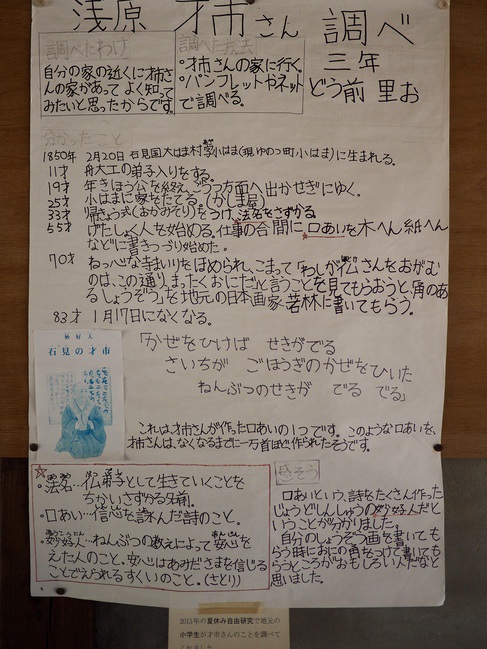 浅原 才市さん 調べ
三年
どう前 里お
調べたわけ
自分の家の近くに才市さ
んの家があって よく知って
みたいと思ったからです。
調べた方法
・才市さんの家に行く。
・パンフレットやネット
で調べる。
分かったこと
1850年 2月20日 石見国大はま村字小はま(現ゆのつ町小はま)に生まれる。
11才 舟大工の弟子入りをする。
19才 年きぼう公を終え、ごうつ方面へ出かせぎにゆく。
25才 小はまに家をたてる。(かじま屋)
33才 帰きょう式(おかみそり)をうけ、法名をさずかる
55才 げたしょく人を始める。仕事の合間に 口あいを木へん紙へん
などに書きつづり始めた。
70才 ねっ心な寺まいりをほめられ、こまって「わしが仏さんをおがむ
のは、この通り、まったくおにだ」と言うことを見てもらおうと、角のあ
るしょうぞうを地元の日本画家若林に書いてもらう。
83才 1月17日になくなる。
「かぜをひけば せきがでる
さいちが ごほうぎのかぜをひいた
ねんぶつのせきが でる でる」
妙好人
石見の才市
これは、才市さんが作った口あいの1つです。このような口あいを、
才市さんは、なくなるまでに一万首ほど作られたそうです。
・法名…仏弟子として生きていくことを
ちかいさずかる名前。
・口あい…信心を詠んだ詩のこと。
・妙好人…ねんぶつの教えによって安心を
えた人のこと。安心はあみださまを信じる
ことでえられるすくいのこと。(さとり)
感そう
口あいという、詩をたくさん作った
じょうどしんしゅうの妙好人だと
いうことが分かりました。
自分のしょうぞう画を書いても
らう時におにの角をつけて書いても
らうところがおもしろい人だなと
思いました。
2015年の夏休み自由研究で地元の
小学生が才市さんのことを調べて
くれました